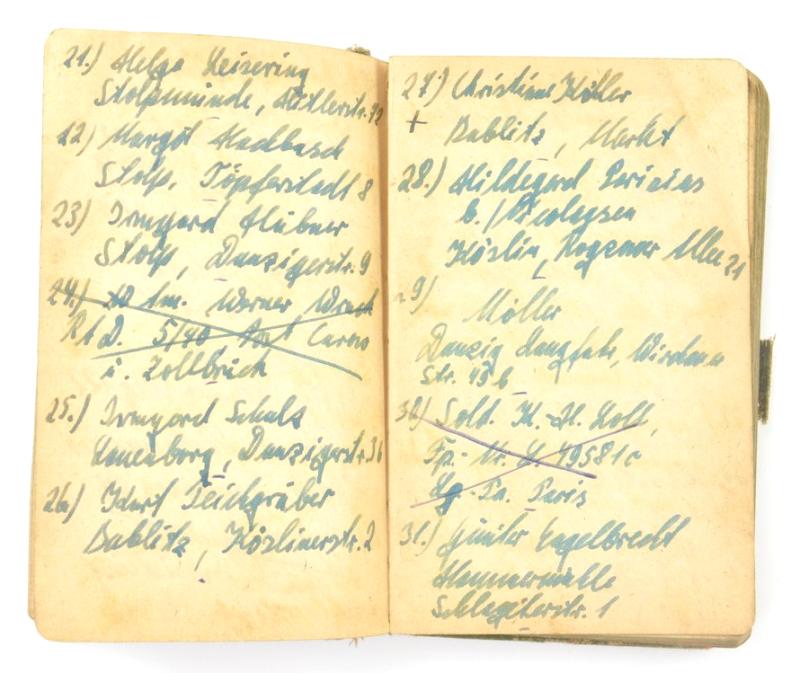 21.) Helga Keisering
Stolpmünde, Hitlerstr. 72
12) Margot Hackbusch
Stolp, Töpferstadt 8
23) Irmgard Hübner
Stolp, Danzigerstr. 9
24.) Werner
RAD. 5/40 Post
ü. Zollbrück
25.) Irmgard Schulz
Lauenburg, Danzigerstr. 36
26.) Kurt Teichgräber
Bublitz, Köslinerstr. 2
27.) Christiane Köller
+ Bublitz, Markt
28.) Hildegard
b./Nicolaysen
Köslin, Rogzower Allee 21
29) Möller
Danzig Langfuhr,
Str. 45 b
30) Sold. K.-H. Koll,
Fp.-Nr. L 49581c
Lg.-Pa. Paris
31.) Günter Engelbrecht
Hammermühle
Schlageterstr. 1